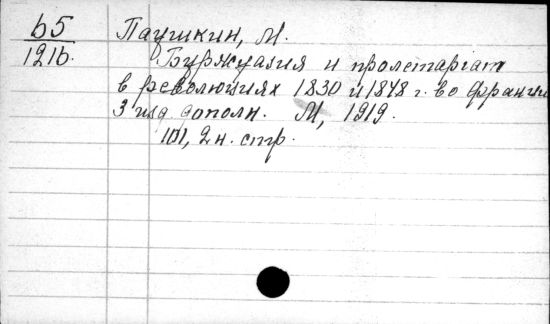 Б5
1216.
Паушкин, М.
Буржуазия и пролетариат
в революциях 1830 и 1848 г. во Франции
3 изд. дополн. М, 1919.
101, 2 н. стр.